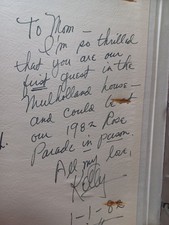 To Mom —
I'm so thrilled
that you are our
first guest in the
Mulholland house —
and could
our 1982 Rose
Parade in person
All my love,
Kelly
1-1-82